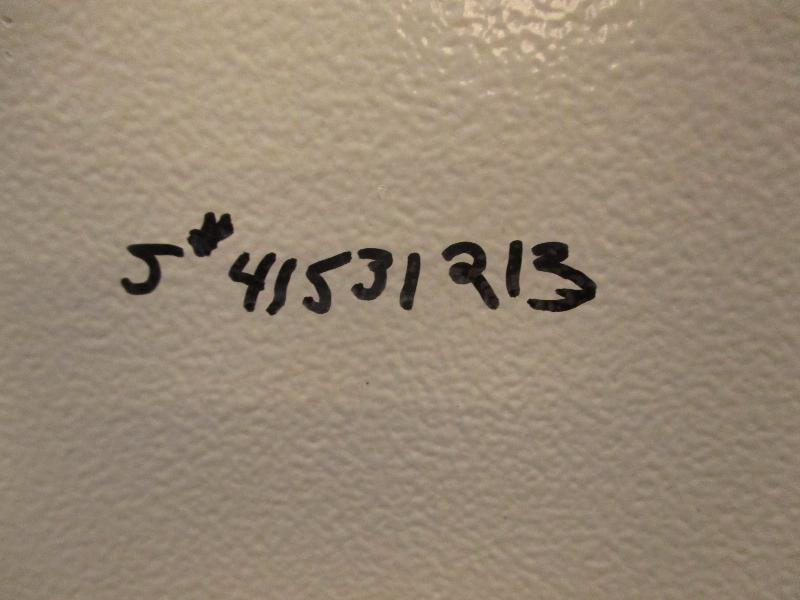 S# 41531213